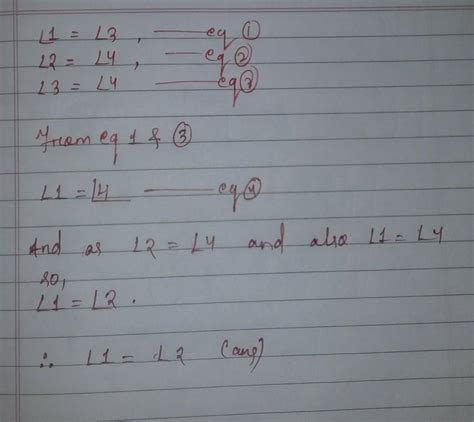 ∠1 = ∠3, —— eq ①
∠2 = ∠4, — eq ②
∠3 = ∠4 —— eq ③
From eq 1 & ③
∠1 = ∠4 —— eq ④
And as ∠2 = ∠4 and also ∠1 = ∠4
so,
∠1 = ∠2 .
∴ ∠1 = ∠2 (ans)